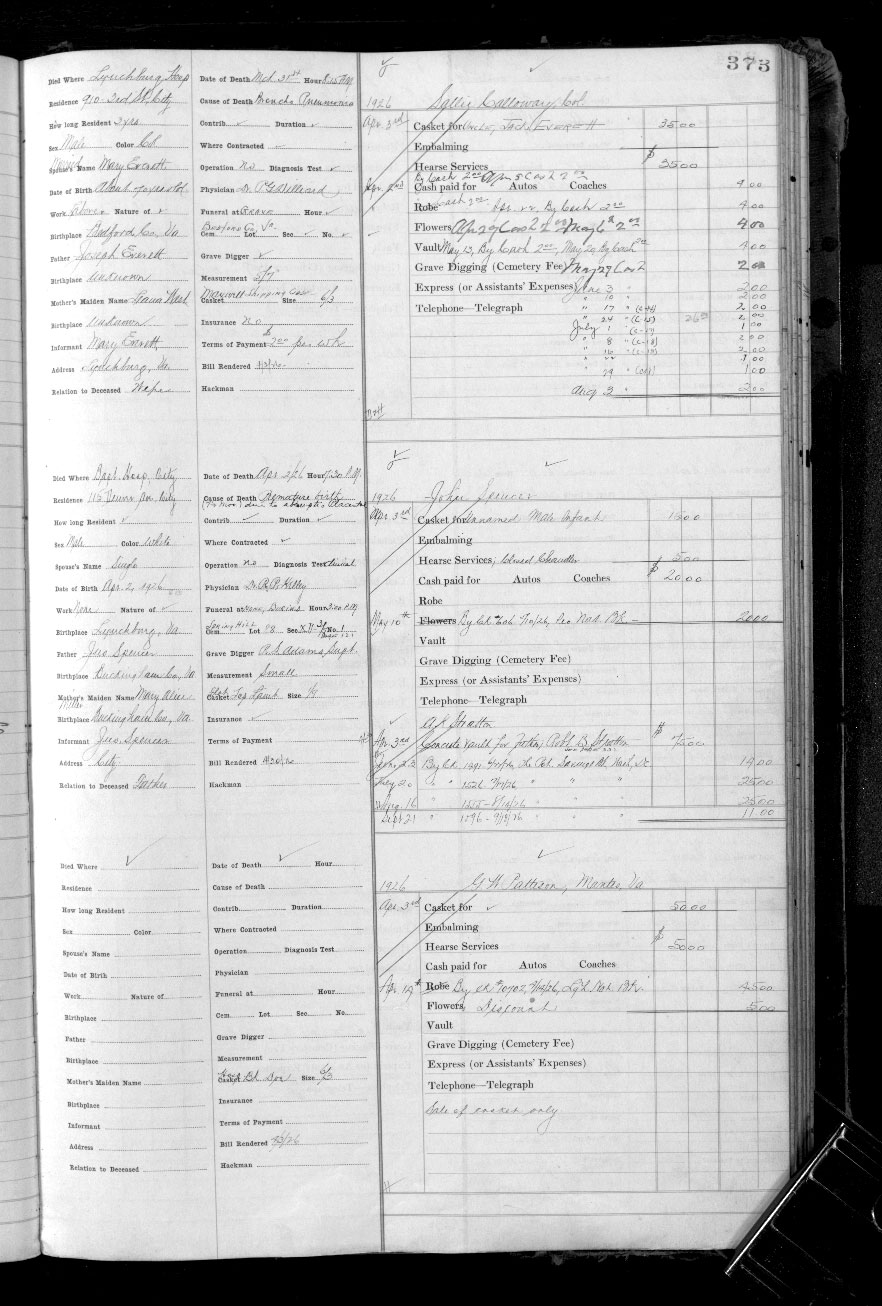 373
Died Where Lynchburg Hosp
Residence 910 3rd St. City
How long Resident 2 yrs
Sex Male Color Col
Married
Spouse's Name Mary Everett
Date of Birth About 70 years old
Work Nature of
Birthplace Bedford Co, Va
Father Joseph Everett
Birthplace Unknown
Mother's Maiden Name
Birthplace Unknown
Informant Mary Everett
Address Lynchburg, Va.
Relation to Deceased Wife
Date of Death Mch 31st Hour 8:15 P.M.
Cause of Death Broncho Pneumonia
Contrib. Duration
Where Contracted
Operation No Diagnosis Test
Physician Dr.
Funeral at Grave Hour
Bedford Co, Va
Cem. Lot Sec No.
Grave Digger
Measurement 5/7
Maxwell Shipping Case
Casket Size 6/3
Insurance No
Terms of Payment $2.00 per wk
Bill Rendered
Hackman
1926 Sallie Calloway, Col.
Apr. 3rd Casket for Uncle, Jack Everett 35 00
Embalming
Hearse Services $35 00
By Cash 2.00 Apr 5 Cash 2.00
Apr. 2nd Cash paid for Autos Coaches 4 00
Robe Cash 2.00 Apr. 22 By Cash 2.00 4 00
Flowers Apr 29 Cash 2.00 May 6th 2.00 4 00
Vault May 13, By Cash 2.00, May 20 By Cash 2.00 4 00
Grave Digging (Cemetery Fee) May 27 Cash 2 00
Express (or Assistants' Expenses) June 3 " 2 00
" 10 " 2 00
Telephone—Telegraph " 17 " (C-14) 2 00
" 24 " (C-15) 2 00
July 1 " (C-17) 1 00
" 8 " (C-18) 2 00
" 16 " (C-19) 2 00
" 22 " 1 00
" 29 " 1 00
Aug 3 " 2 00
Died Where Bapt. Hosp, City
Residence City
How long Resident
Sex Male Color White
Spouse's Name Single
Date of Birth Apr. 2, 1926
Work None Nature of
Birthplace Lynchburg, Va
Father Jno Spencer
Birthplace Buckingham Co, Va
Mother's Maiden Name Mary Alice
Miller
Birthplace Buckingham Co, Va.
Informant Jno. Spencer
Address City
Relation to Deceased Father
Date of Death Apr 2/26 Hour 7:30 P.M.
Cause of Death Premature birth
Contrib. Duration
Where Contracted
Operation No Diagnosis Test Clinical
Physician Dr. R. P. Kelley
Funeral at Hour 3:00 P.M
Spring Hill
Cem. Lot 98 Sec. No. 1
Grave Digger R. S. Adams, Supt.
Measurement Small
Casket Top Lamb Size
Insurance
Terms of Payment
Bill Rendered 4/30/26
Hackman
1926 John Spencer
Apr 3rd Casket for Unnamed Male Infant 15 00
Embalming
Hearse Services, Closed Chandler 5 00
Cash paid for Autos Coaches $20 00
Robe
May 10th Flowers By Ck 5/10/26, Peo Natl. Bk. 20 00
Vault
Grave Digging (Cemetery Fee)
Express (or Assistants' Expenses)
Telephone—Telegraph
A. R. Stratton
Apr. 3rd Concrete Vault for Father, Robt. B. Stratton $75 00
22 By Ck. 14 00
20 " " 1526 " " " 25 00
Aug. 16 " 1555 - 8/16/26 " " " 25 00
Sept 21 " 1596 - " " " 11.00
Died Where
Residence
How long Resident
Sex Color
Spouse's Name
Date of Birth
Work Nature of
Birthplace
Father
Birthplace
Mother's Maiden Name
Birthplace
Informant
Address
Relation to Deceased
Date of Death Hour
Cause of Death
Contrib. Duration
Where Contracted
Operation Diagnosis Test
Physician
Funeral at Hour
Cem. Lot Sec. No.
Grave Digger
Measurement
Casket Size 6/3
Insurance
Terms of Payment
Bill Rendered
Hackman
1926 G. W. Pattison, Va
Apr. 3rd Casket for 50 00
Embalming
Hearse Services $50 00
Cash paid for Autos Coaches
Apr. 19th Robe By ck #10702, Natl. Bk. 45 00
Flowers " Discount 5 00
Vault
Grave Digging (Cemetery Fee)
Express (or Assistants' Expenses)
Telephone—Telegraph
Sale of casket only